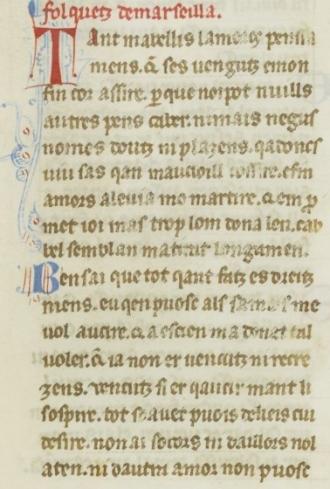 folquetz de marseilla.
Tant mabellis lamoros pensa
mens. & ses uengutz emon
fin cor assire. p que noi pot nuills
autres pens caber. ni mais negus
nomes doutz ni plazens. qadoncs
uiu sas qan maucioill cossire. efin
amors aleuia mo martire. & em p
met ioi mas trop lom dona len. cab
bel semblan matrait longamen.
Ben sai que tot qant fatz es dreitz
mens. eu qen puosc als samors me
uol aucire. & a escien ma donat tal
uoler. & ia non er uencutz ni recre
zens. uencutz si er qaucir mant li
sospire. tot suauet puois de lieis cui
desire. non ai socors ni daillors nol
aten. ni dautra amor non puosc